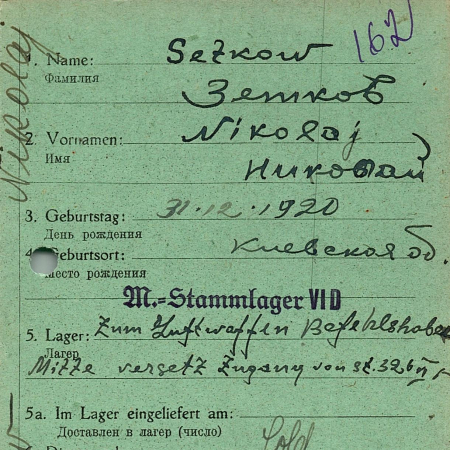 162
1. Name: Setkow
Фамилия Зетков
2. Vornamen: Nikolaj
Имя Николай
3. Geburtstag: 31.12.1920
День рождения
4. Geburtsort: Киевская об.
Место рождения
M.-Stammlager VI D
5. Lager: Zum Luftwaffen Befehlshaber
Лагер
Mitte versetz Zugang von St. 326
5a. Im Lager eingeliefert am:
Доставлен в лагер (число)
Nikolaj